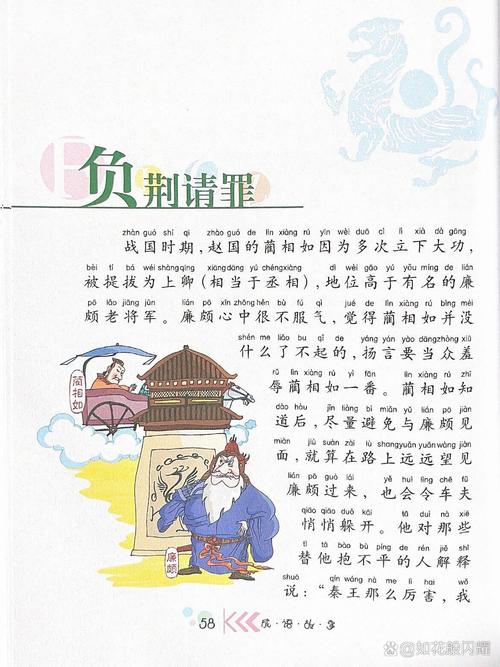 负荆请罪
zhàn guó shí qī zhào guó de lìn xiàng rú yīn wèi duō cì lì xià dà gōng
战国时期，赵国的蔺相如因为多次立下大功，
bèi tí bá wéi shàng qīng xiāng dāng yú chéng xiàng dì wèi gāo yú yǒu míng de lián
被提拔为上卿（相当于丞相），地位高于有名的廉
pō lǎo jiāng jūn lián pō xīn zhōng hěn bù fú qì jué de lìn xiàng rú bìng méi
颇老将军。廉颇心中很不服气，觉得蔺相如并没
shén me liǎo bu qǐ de yáng yán yào dāng zhòng xiū
什么了不起的，扬言要当众羞
rǔ lìn xiàng rú yì fān lìn xiàng rú zhī
辱蔺相如一番。蔺相如知
dào hòu jìn liàng bì miǎn yǔ lián pō jiàn
道后，尽量避免与廉颇见
miàn jiù suàn zài lù shang yuǎn yuǎn wàng jiàn
面，就算在路上远远望见
lián pō guò lái yě huì lìng chē fū
廉颇过来，也会令车夫
qiāo qiāo duǒ kāi tā duì nà xiē
悄悄躲开。他对那些
tì tā bào bù píng de rén jiě shì
替他抱不平的人解释
shuō qín wáng nà me lì hai wǒ
说：“秦王那么厉害，我
蔺相如
廉颇
58 成·语·故·事
@如花般闪耀